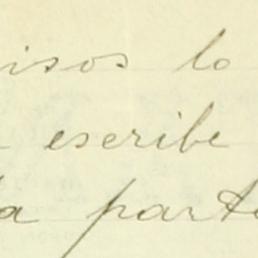 isos lo
escribe
a parte